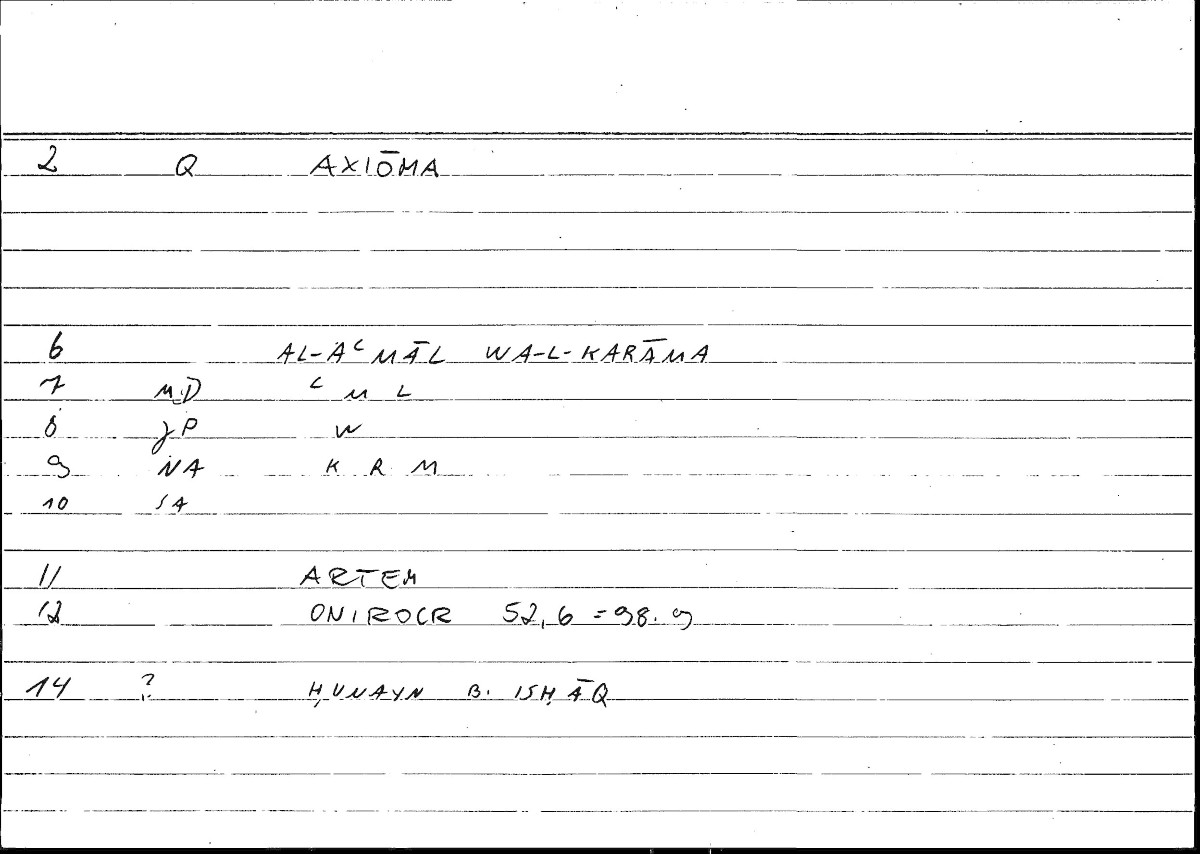 2 Q AXIŌMA
6 AL-AʿMĀL WA-L-KARĀMA
7 MD ʿ M L
8 JP W
9 NA K R M
10 SA
11 ARTEM
12 ONIROCR 52,6 = 98.9
14 ? ḤUNAYN B. ISḤĀQ